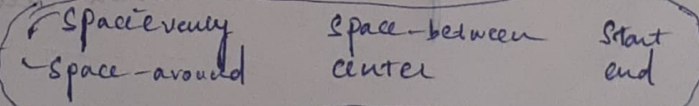 space evenly space-between start
space-around center end